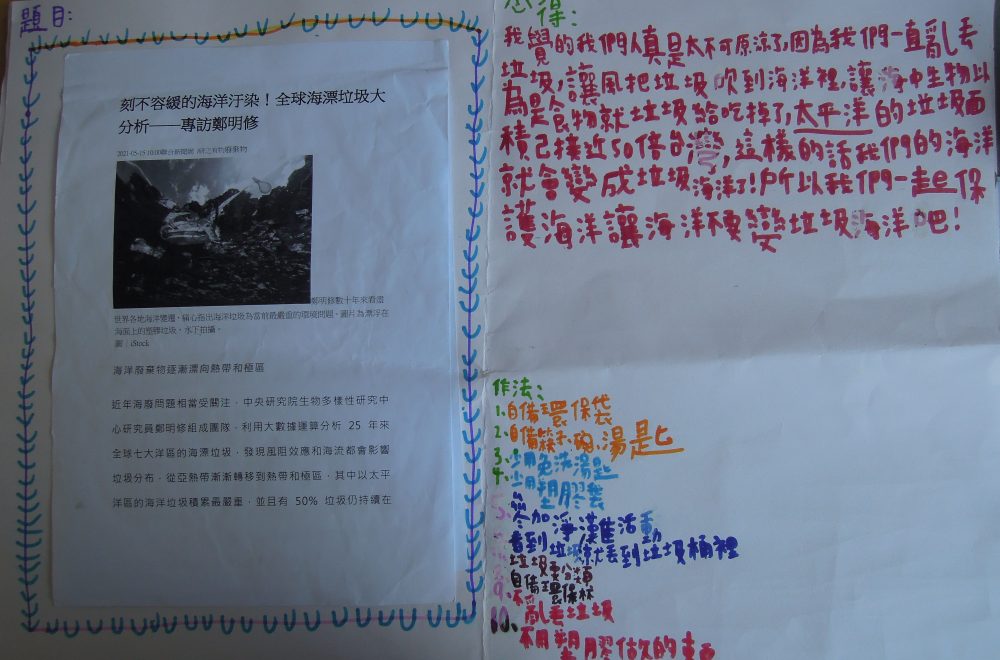 題目:
刻不容緩的海洋汙染！全球海漂垃圾大
分析——專訪鄭明修
2021-05-15 10:00聯合新聞網 /研之有物廢棄物
鄭明修數十年來看盡
世界各地海洋變遷，痛心指出海洋垃圾為當前最嚴重的環境問題。圖片為漂浮在
海面上的塑膠垃圾，水下拍攝。
圖｜iStock
海洋廢棄物逐漸漂向熱帶和極區
近年海廢問題相當受關注，中央研究院生物多樣性研究中
心研究員鄭明修組成團隊，利用大數據運算分析 25 年來
全球七大洋區的海漂垃圾，發現風阻效應和海流都會影響
垃圾分布，從亞熱帶漸漸轉移到熱帶和極區，其中以太平
洋區的海洋垃圾積累最嚴重，並且有 50% 垃圾仍持續在
心得:
我覺的我們人真是太不可原諒了,因為我們一直亂丟
垃圾,讓風把垃圾吹到海洋裡,讓海中生物以
為是食物就垃圾給吃掉了,太平洋的垃圾面
積已接近50倍台灣,這樣的話我們的海洋
就會變成垃圾海洋了!所以我們一起保
護海洋讓海洋不要變垃圾海洋吧!
作法:
1.自備環保袋
2.自備筷子、碗、湯匙
3.少用免洗湯匙
4.少用塑膠袋
5.參加淨灘活動
看到垃圾就丟到垃圾桶裡
垃圾要分類
8.自備環保杯
9.不亂丟垃圾
10.不用塑膠做的東西